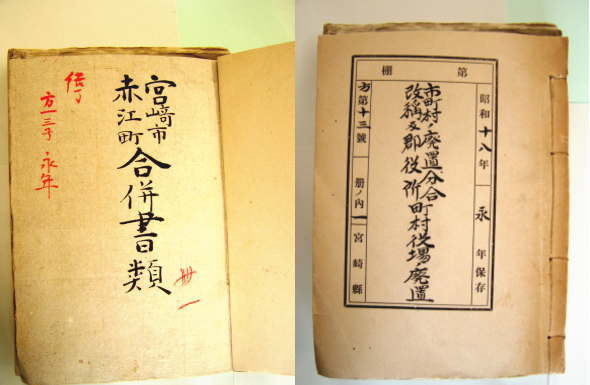 宮﨑市
赤江町
合併書類
方一三号 永年
冊一
第 棚
昭和十八年 永 年保存
市町村ノ廃置分合
改稱及郡役所町村役場ノ廃置
方第十三號 册ノ内一 宮崎縣